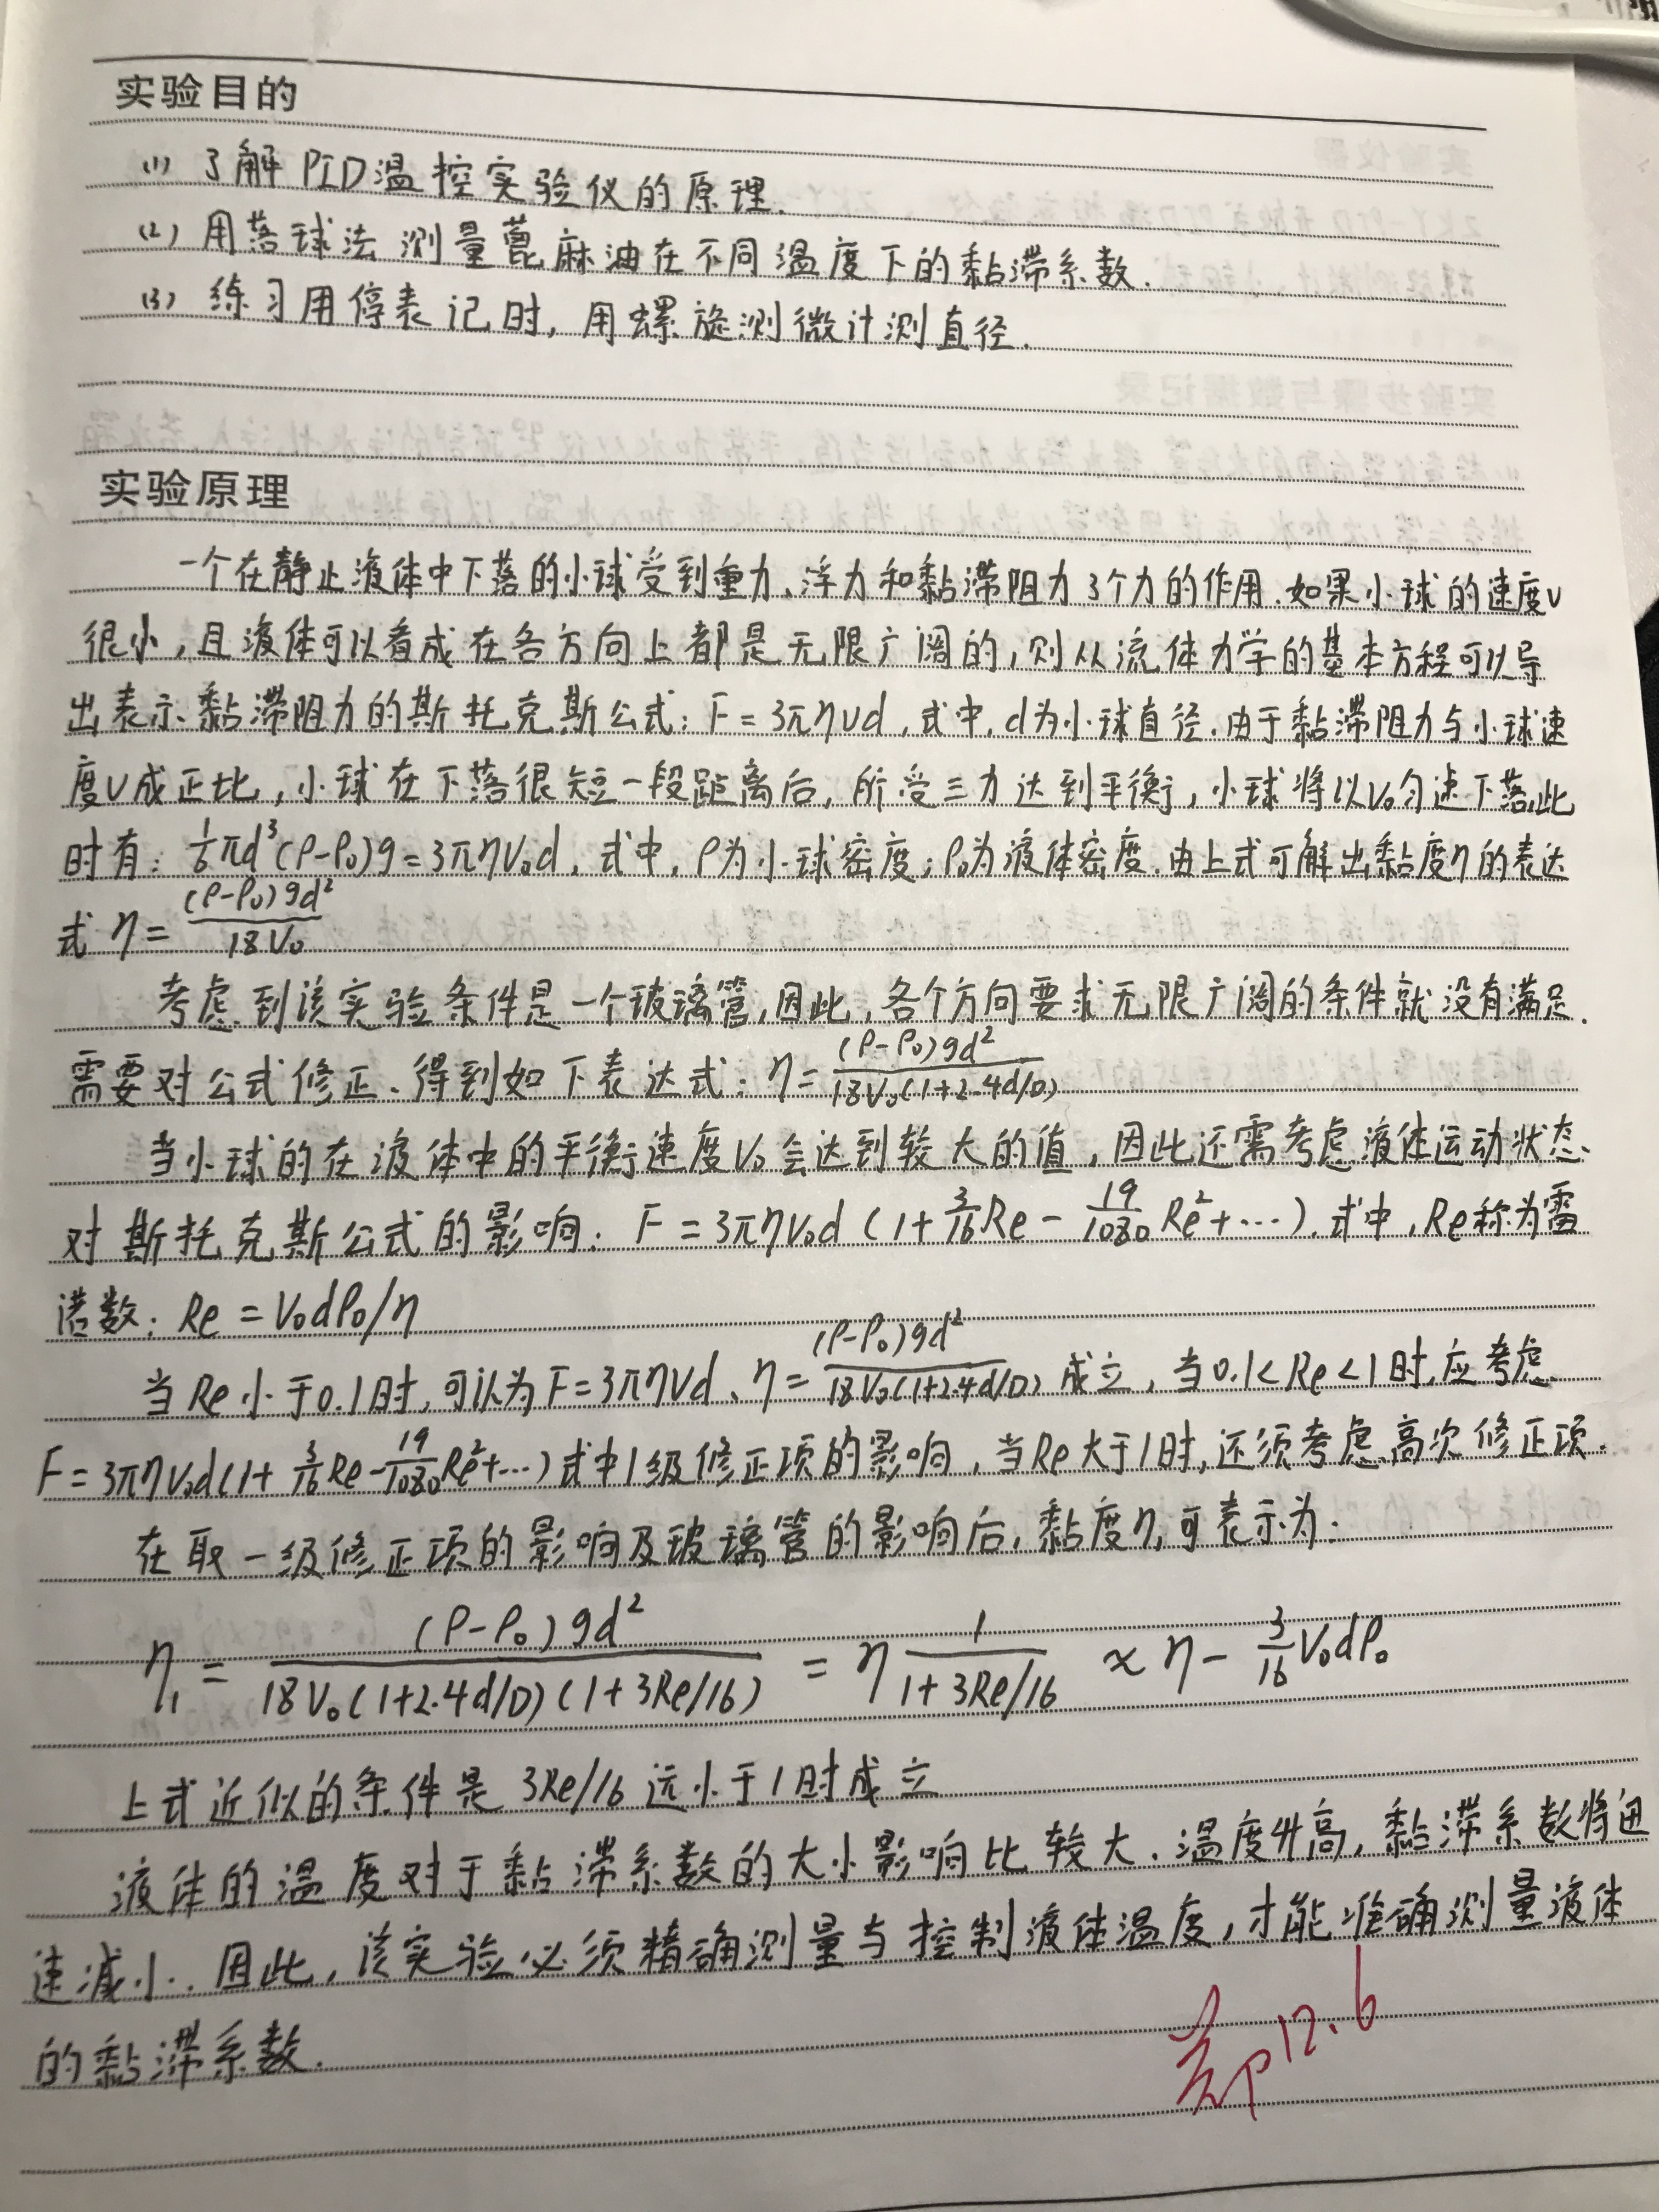 实验目的
(1) 了解PID温控实验仪的原理.
(2) 用落球法测量蓖麻油在不同温度下的黏滞系数.
(3) 练习用停表记时, 用螺旋测微计测直径.
实验原理
一个在静止液体中下落的小球受到重力、浮力和黏滞阻力3个力的作用.如果小球的速度v
很小,且液体可以看成在各方向上都是无限广阔的,则从流体力学的基本方程可以导
出表示黏滞阻力的斯托克斯公式: F=3πηvd,式中,d为小球直径.由于黏滞阻力与小球速
度v成正比,小球在下落很短一段距离后,所受三力达到平衡,小球将以V₀匀速下落,此
时有: 1/6πd³(ρ-ρ₀)g=3πηV₀d, 式中, ρ为小球密度;ρ₀为液体密度.由上式可解出黏度η的表达
式 η=(ρ-ρ₀)gd²/18V₀
考虑到该实验条件是一个玻璃管,因此,各个方向要求无限广阔的条件就没有满足.
需要对公式修正、得到如下表达式: η=(ρ-ρ₀)gd²/18V₀(1+2.4d/D)
当小球的在液体中的平衡速度V₀会达到较大的值,因此还需考虑液体运动状态
对斯托克斯公式的影响: F=3πηV₀d(1+3/16Re-19/1080Re²+…).式中,Re称为雷
诺数: Re=V₀dρ₀/η
当Re小于0.1时,可认为F=3πηVd、η=(ρ-ρ₀)gd²/18V₀(1+2.4d/D)成立,当0.1<Re<1时,应考虑
F=3πηV₀d(1+3/16Re-19/1080Re²+…)式中1级修正项的影响,当Re大于1时,还须考虑高次修正项.
在取一级修正项的影响及玻璃管的影响后,黏度η₁可表示为:
η₁=(ρ-ρ₀)gd²/18V₀(1+2.4d/D)(1+3Re/16)=η 1/1+3Re/16 ∝ η-3/16V₀dρ₀
上式近似的条件是 3Re/16 远小于1时成立
液体的温度对于黏滞系数的大小影响比较大.温度升高,黏滞系数将迅
速减小.因此,该实验必须精确测量与控制液体温度,才能准确测量液体
的黏滞系数.
12.6